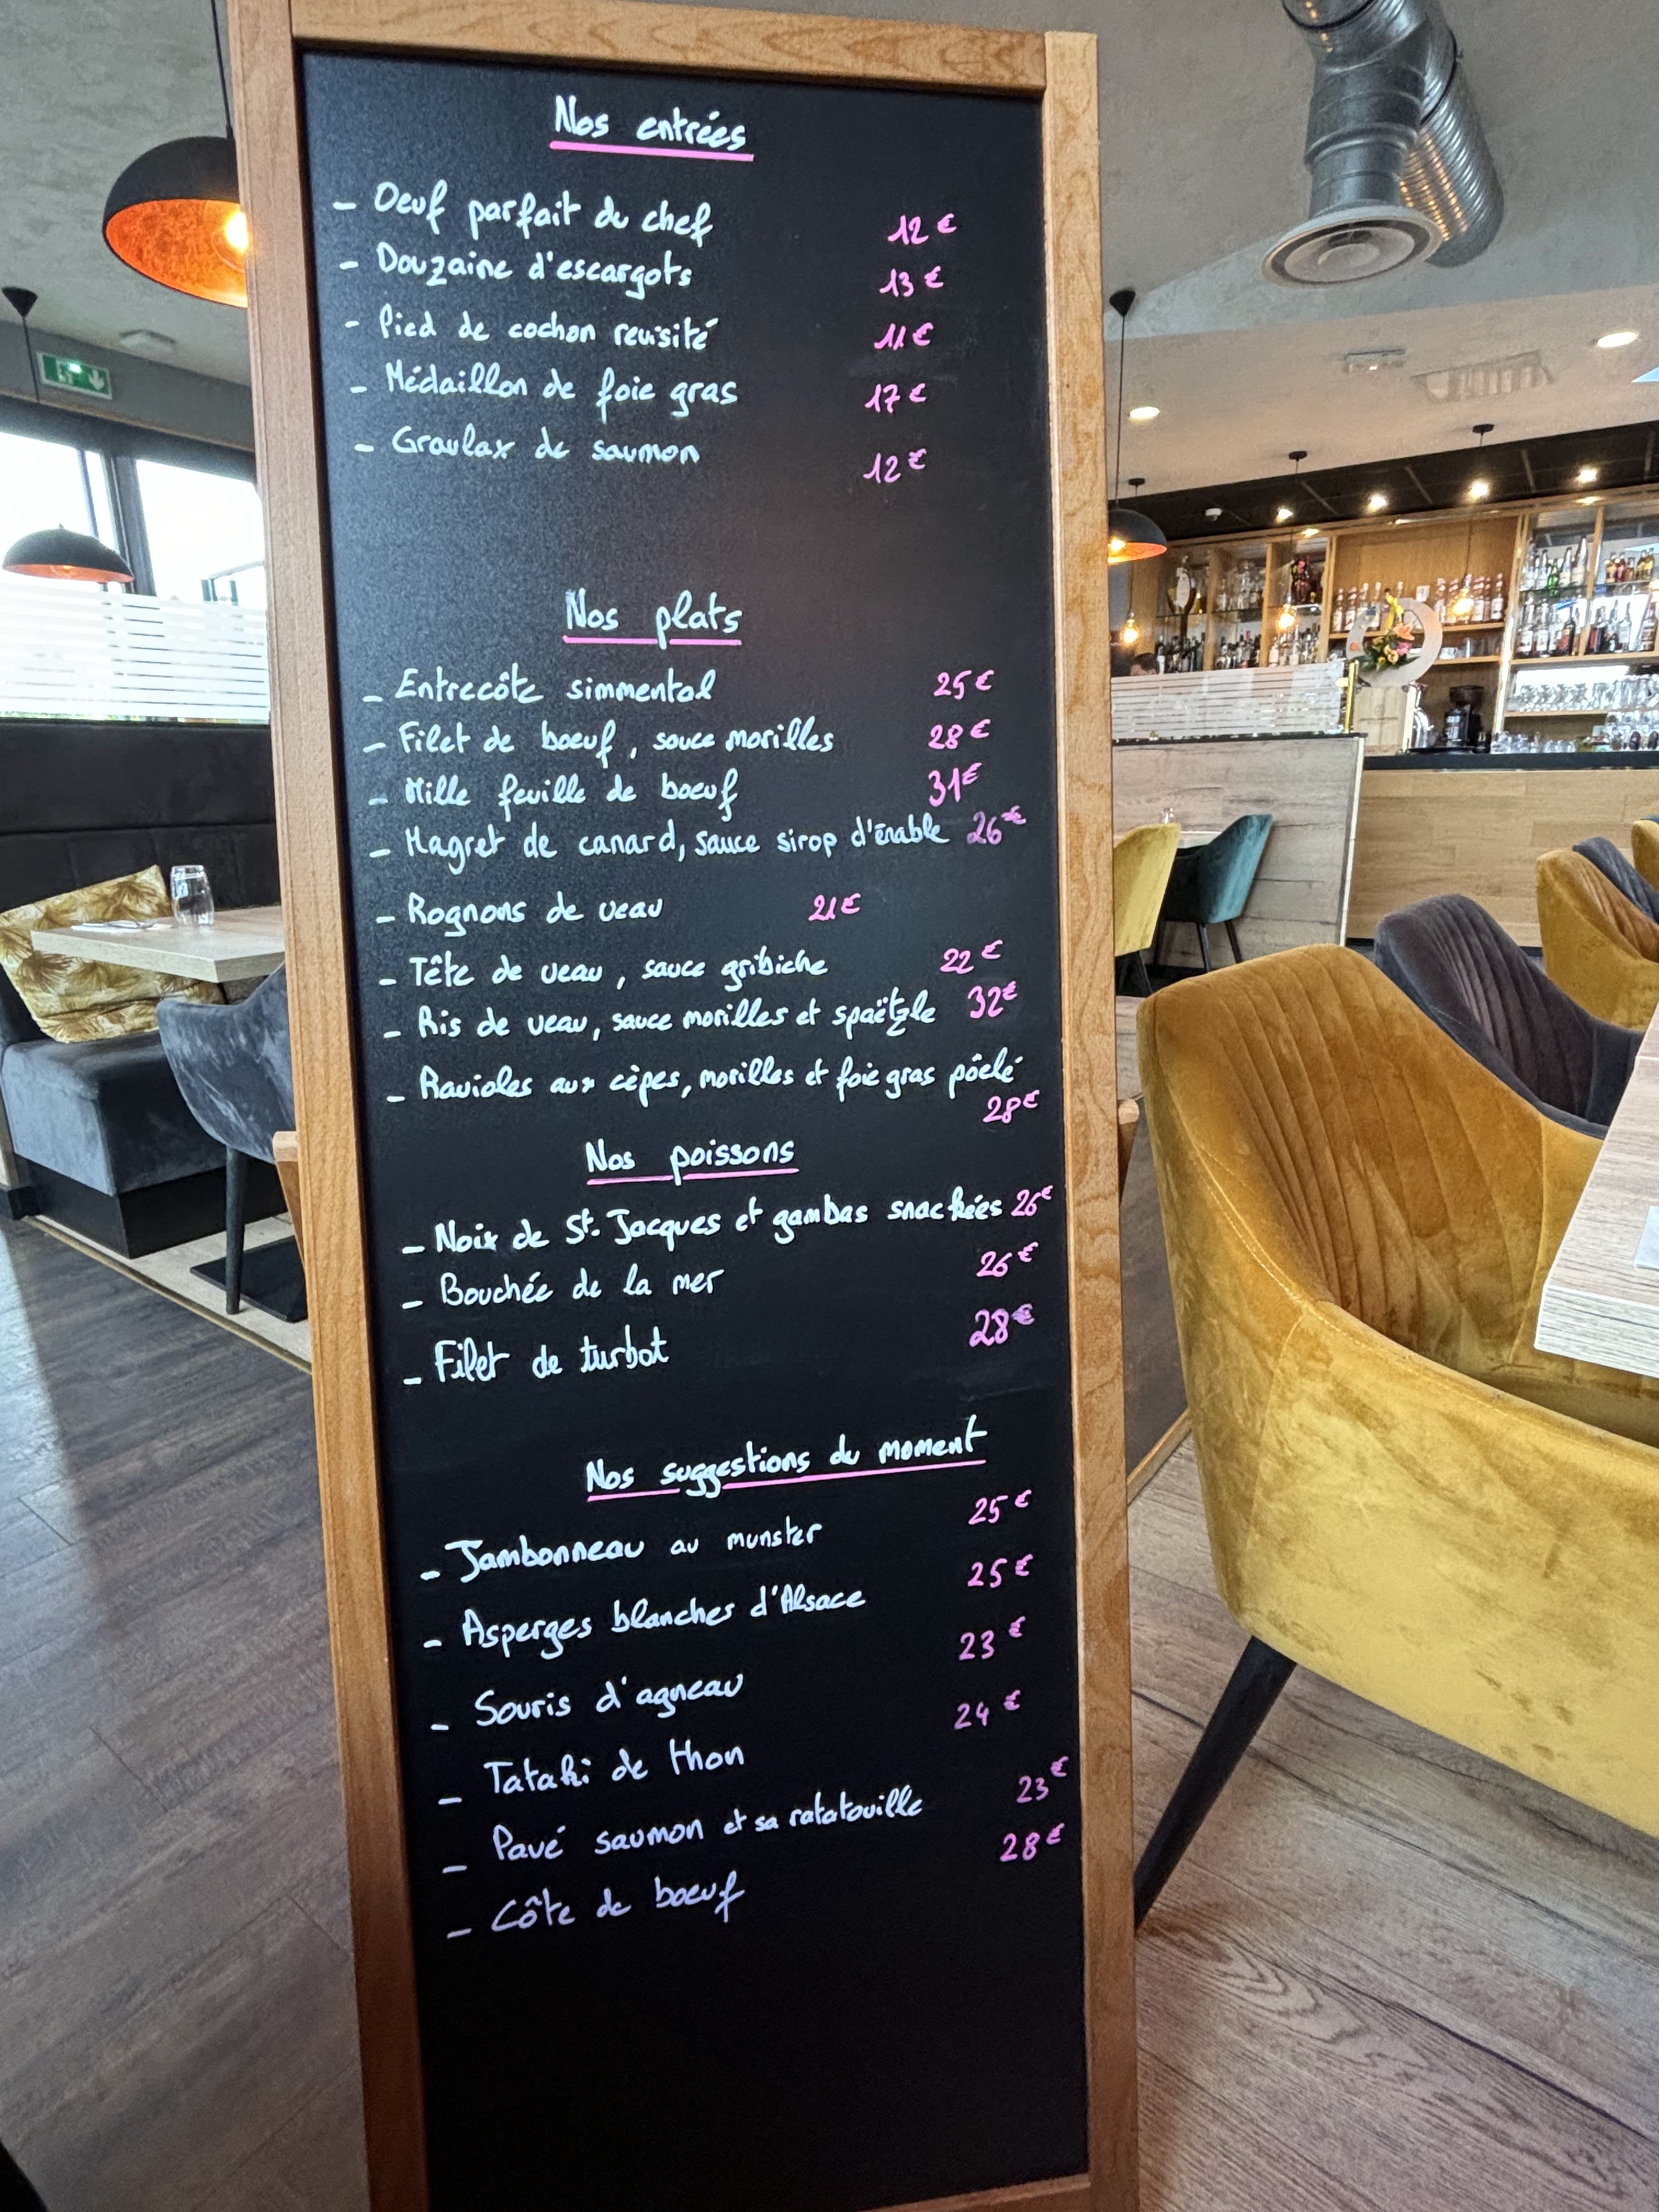 Nos entrées
- Oeuf parfait du chef 12 €
- Douzaine d'escargots 13 €
- Pied de cochon revisité 11 €
- Médaillon de foie gras 17 €
- Gravlax de saumon 12 €
Nos plats
- Entrecôte simmental 25 €
- Filet de boeuf, sauce morilles 28 €
- Mille feuille de boeuf 31 €
- Magret de canard, sauce sirop d'érable 26 €
- Rognons de veau 21 €
- Tête de veau, sauce gribiche 22 €
- Ris de veau, sauce morilles et spaëtzle 32 €
- Ravioles aux cèpes, morilles et foie gras pôelé
28 €
Nos poissons
- Noix de St. Jacques et gambas snackées 26 €
- Bouchée de la mer 26 €
- Filet de turbot 28 €
Nos suggestions du moment
- Jambonneau au munster 25 €
- Asperges blanches d'Alsace 25 €
- Souris d'agneau 23 €
- Tataki de thon 24 €
- Pavé saumon et sa ratatouille 23 €
- Côte de boeuf 28 €